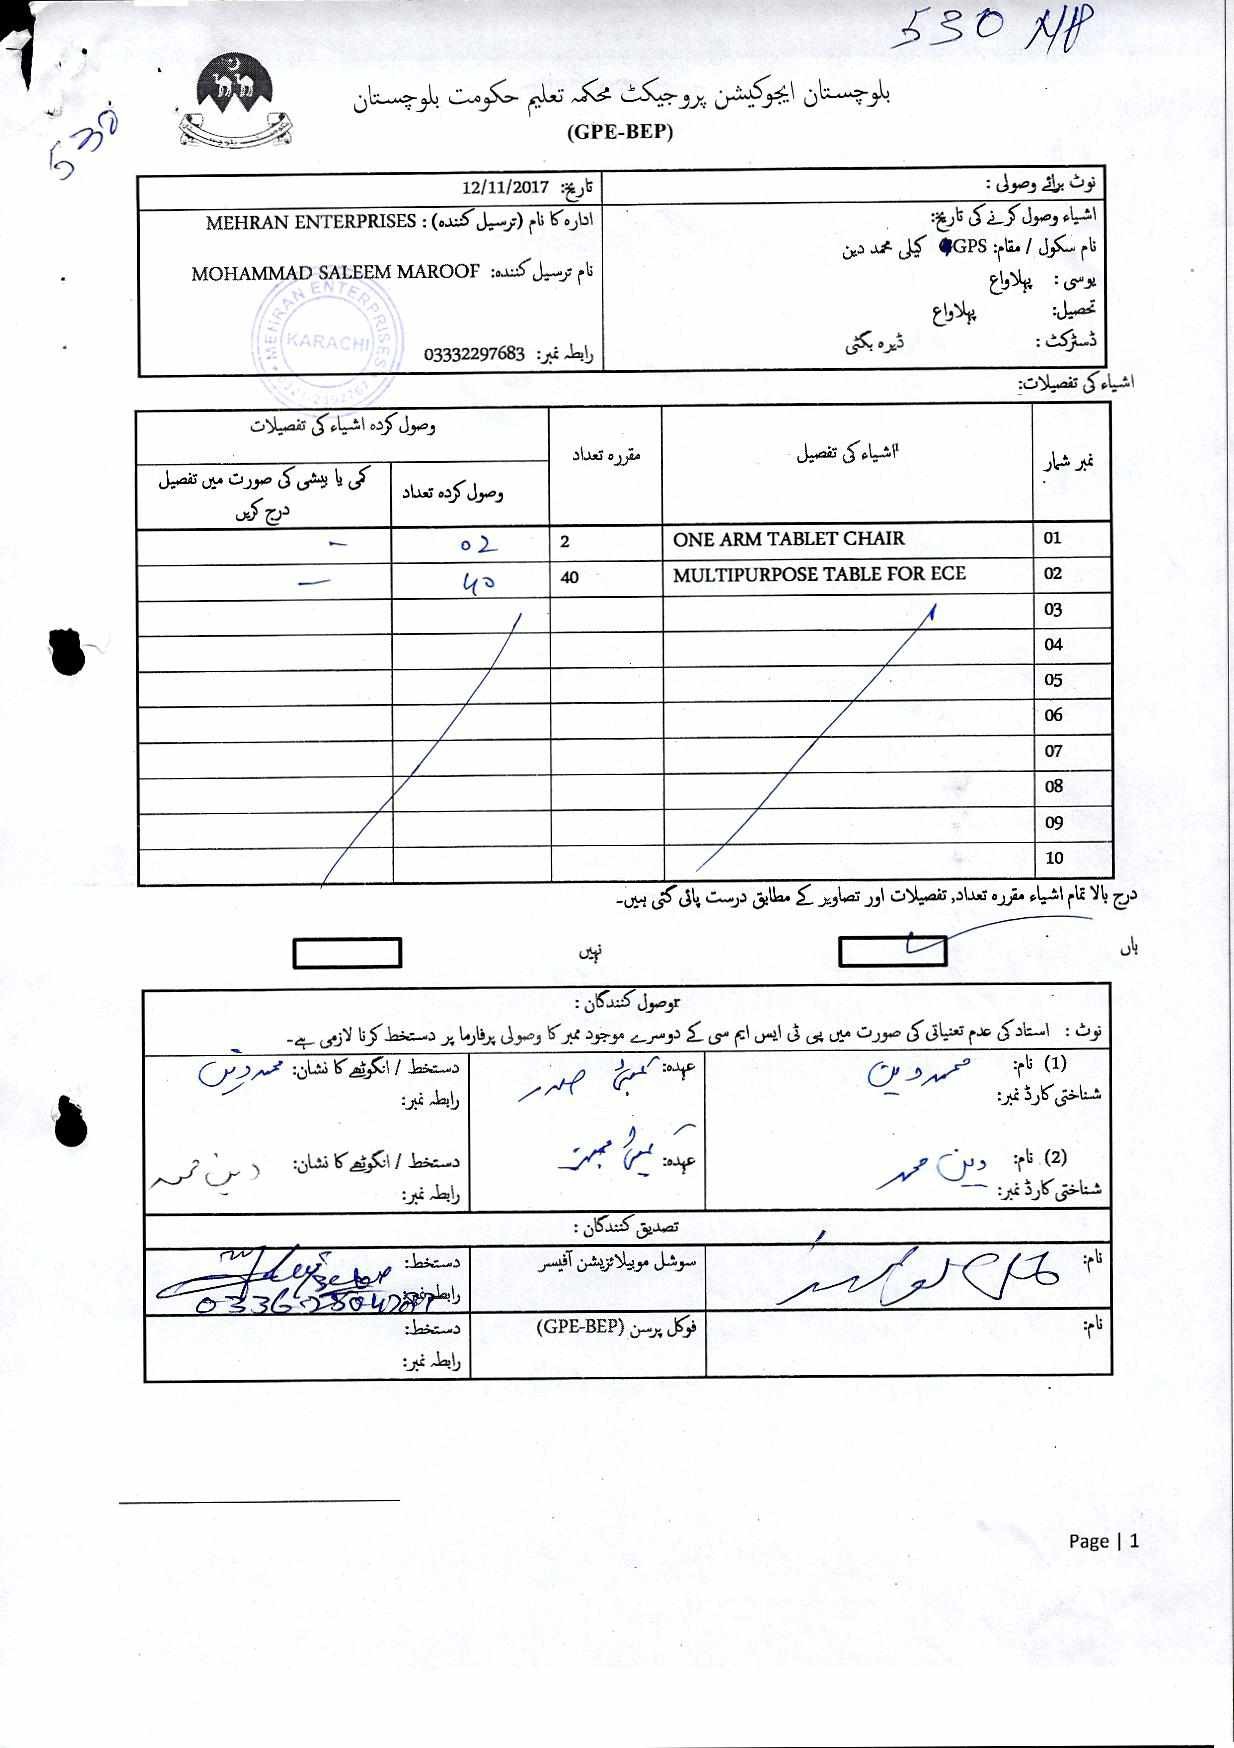 530
530
بلوچستان ایجوکیشن پروجیکٹ محکمہ تعلیم حکومت بلوچستان
(GPE-BEP)
نوٹ برائے وصولی :
تاریخ: 12/11/2017
اشیاء وصول کرنے کی تاریخ:
نام سکول / مقام: GPS کیلی محمد دین
یو سی : پہلاواغ
تحصیل: پہلاواغ
ڈسٹرکٹ : ڈیرہ بگٹی
ادارہ کا نام (ترسیل کنندہ) : MEHRAN ENTERPRISES
نام ترسیل کنندہ: MOHAMMAD SALEEM MAROOF
رابطہ نمبر: 03332297683
MEHRAN ENTERPRISES
KARACHI
اشیاء کی تفصیلات:
نمبر شمار
اشیاء کی تفصیل
مقررہ تعداد
وصول کردہ اشیاء کی تفصیلات
وصول کردہ تعداد
کمی یا بیشی کی صورت میں تفصیل درج کریں
01 ONE ARM TABLET CHAIR 2 02 -
02 MULTIPURPOSE TABLE FOR ECE 40 40 -
03
04
05
06
07
08
09
10
درج بالا تمام اشیاء مقررہ تعداد, تفصیلات اور تصاویر کے مطابق درست پائی گئی ہیں۔
ہاں
نہیں
وصول کنندگان :
نوٹ : استاد کی عدم تعیناتی کی صورت میں پی ٹی ایس ایم سی کے دوسرے موجود ممبر کا وصولی پرفارما پر دستخط کرنا لازمی ہے۔
(1) نام: محمد دین
عہدہ: صدر
دستخط / انگوٹھے کا نشان: محمد دین
شناختی کارڈ نمبر:
رابطہ نمبر:
(2) نام: دین محمد
عہدہ:
دستخط / انگوٹھے کا نشان: دین محمد
شناختی کارڈ نمبر:
رابطہ نمبر:
تصدیق کنندگان :
نام:
سوشل موبیلائزیشن آفیسر
دستخط:
رابطہ نمبر:
نام:
فوکل پرسن (GPE-BEP)
دستخط:
رابطہ نمبر:
Page | 1